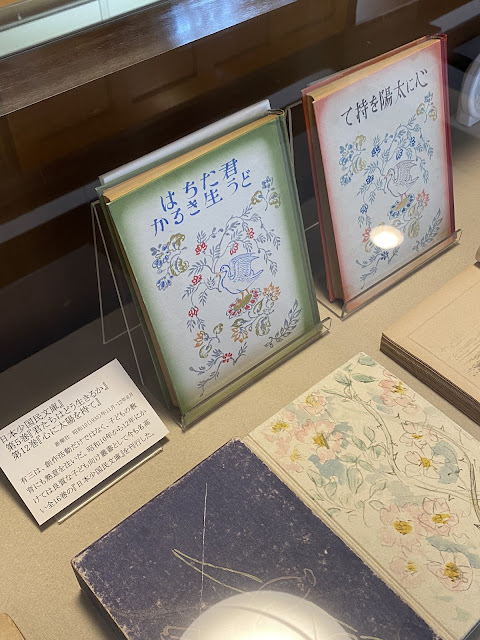 君たちは
どう生きるか
心に太陽を持て
日本少国民文庫』
第5巻『君たちはどう生きるか』
第12巻『心に太陽を持て』
新潮社
有三は、創作活動だけではなく、子どもの教
育にも熱意を注いだ。昭和10年から12年にか
けては良質な子ども向け叢書として今も名高
い全16巻の『日本少国民文庫』を刊行した。